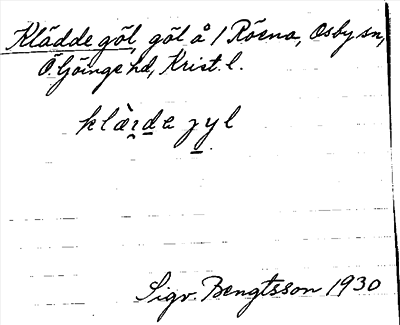 Klädde göl, göl å / Röena, Osby sn,
Ö. Göinge hd, Krist. l.
klὰɪde ɟyl
Sigv. Bengtsson 1930